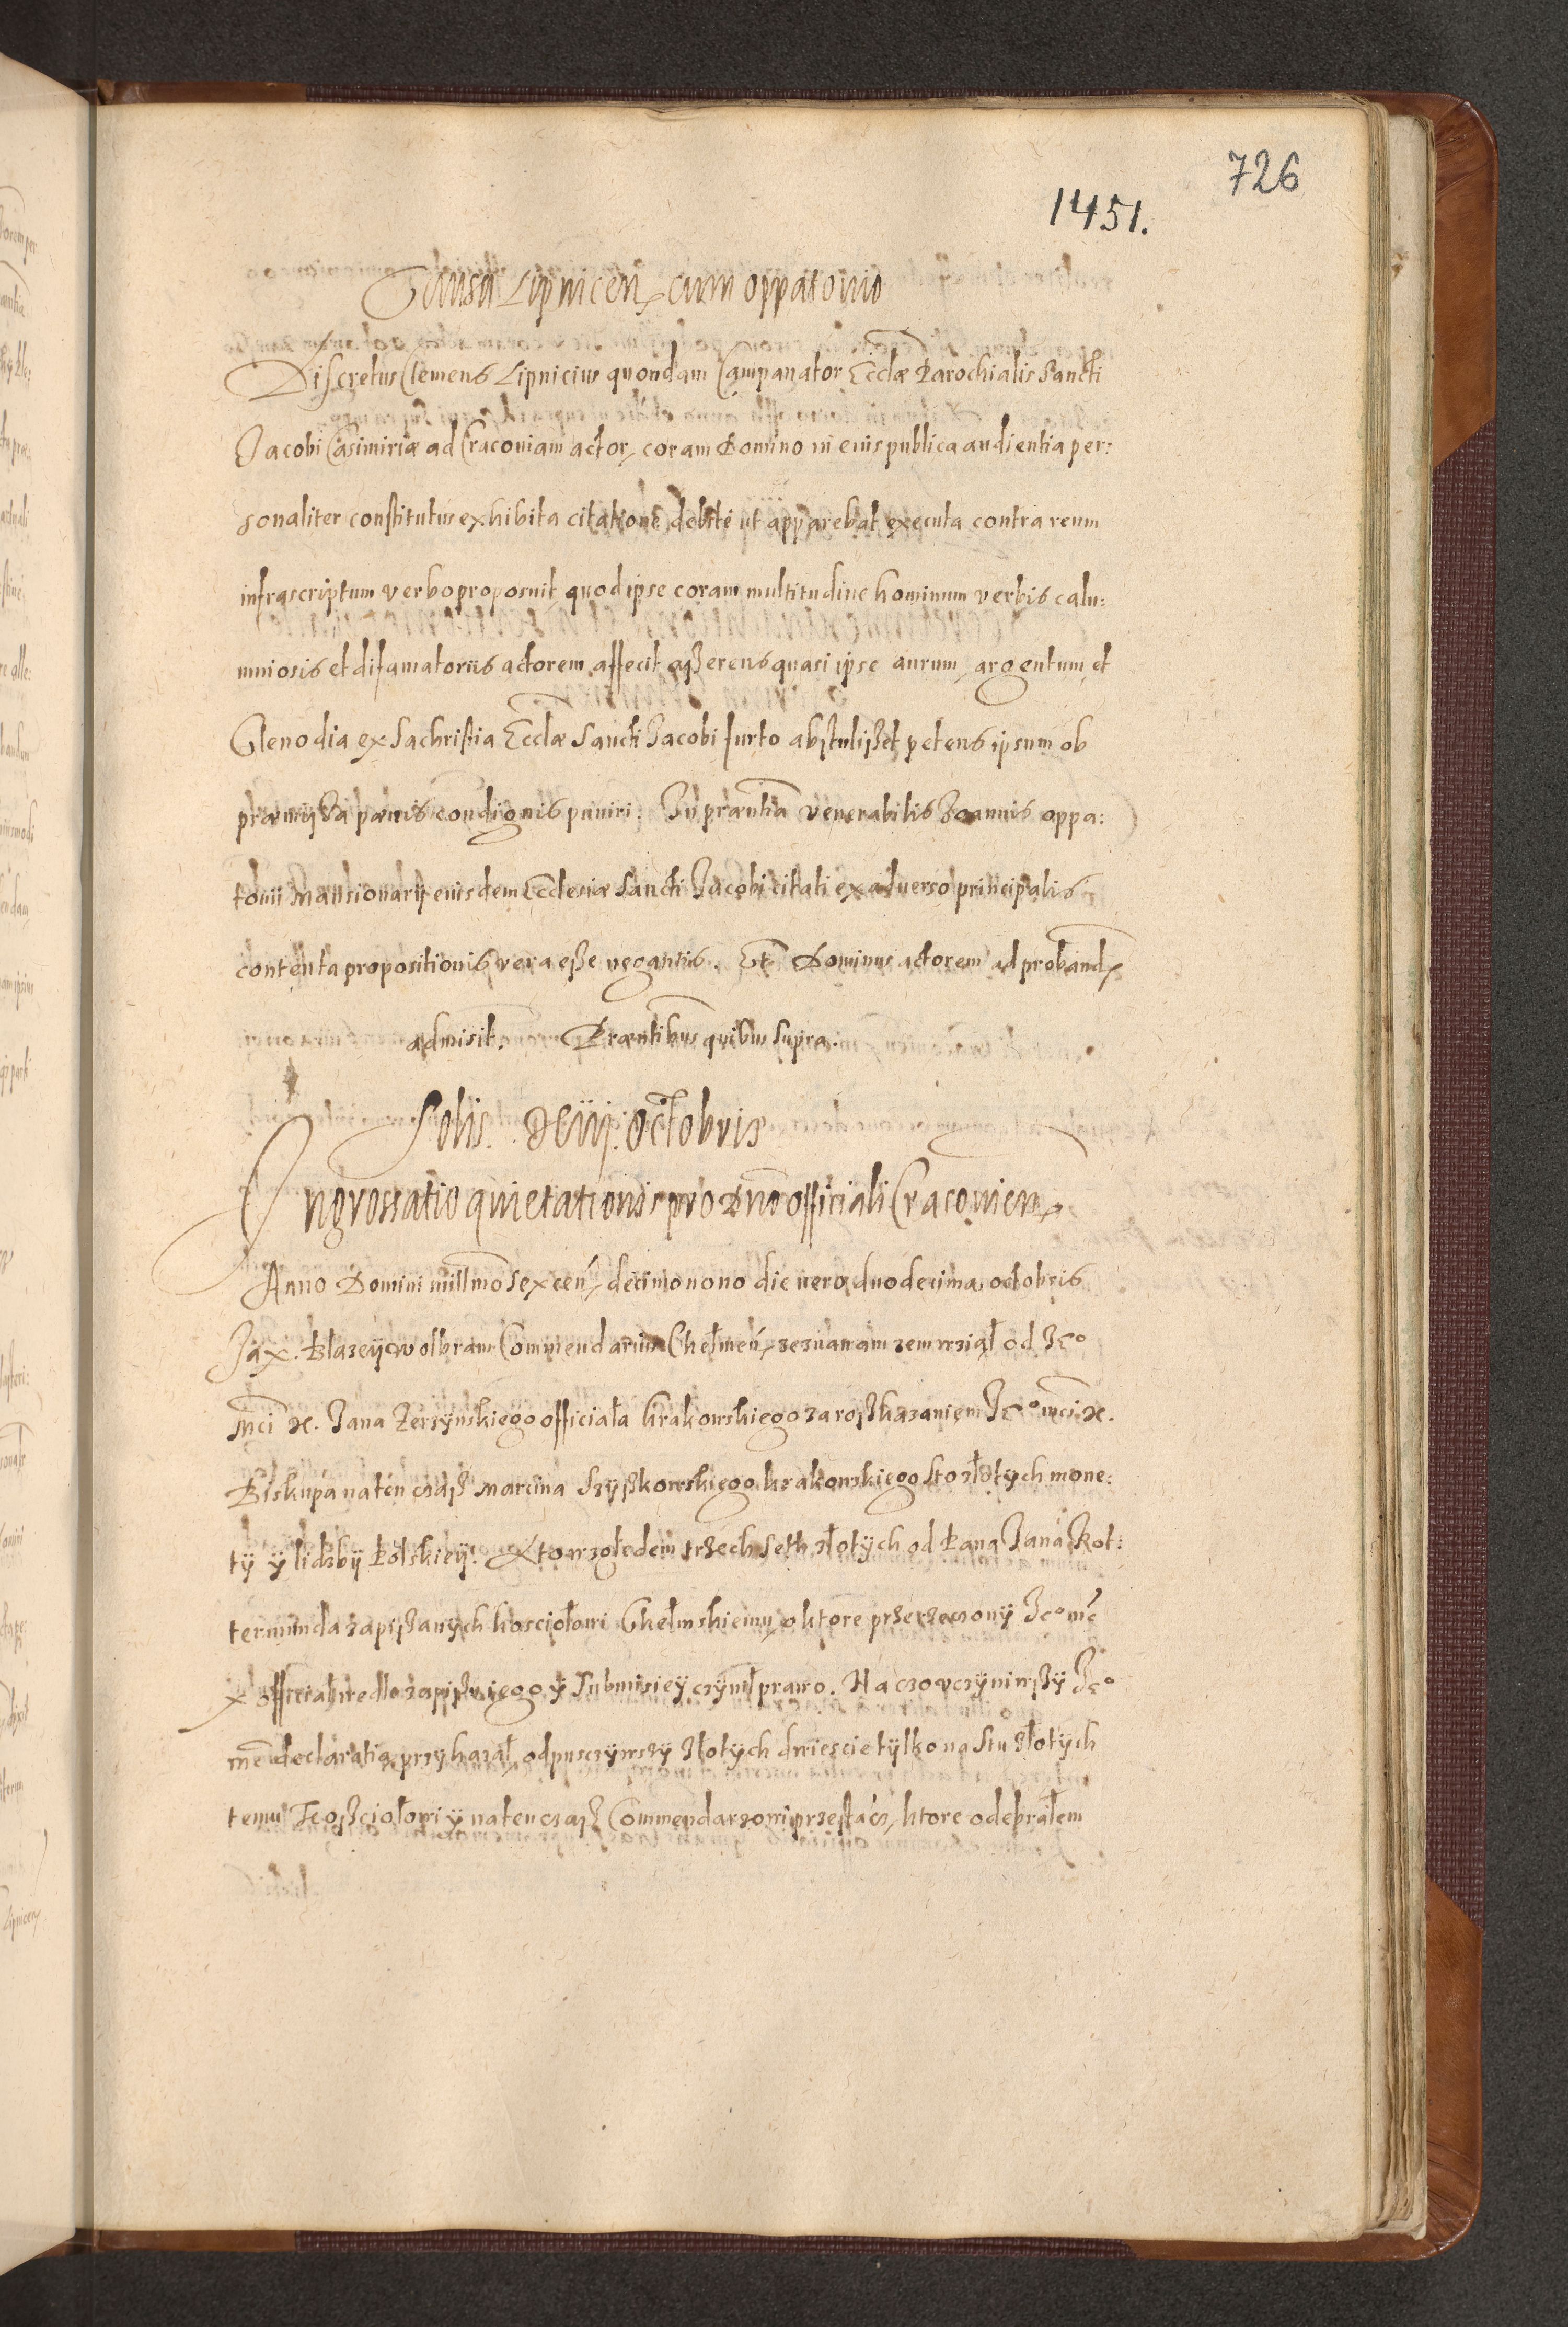 726
1451.
Causa Lipnicen, cum oppatonio
Discretus Clemens Lipnicius quondam Campanator Eccłæ Parochialis Sancti
Jacobi Casimiriæ ad Cracouiam actor, coram Domino in eius publica audientia per:
sonaliter constitutus exhibita citatione debite ut apparebat executa contra reum
infrascriptum verbo proposuit, quod ipse coram multitudine hominum verbis calu:
mniosis et difamatoriis actorem affecit asserens quasi ipse aurum, argentum et
Clenodia ex Sachristia Eccłæ Sancti Jacobi furto abstulisset petens ipsum ob
præmissa pænis condignis puniri. In præntia venerabilis Joannis oppa:
tonii Mansionarij eiusdem Ecclesiæ Sancti Jacobi citati ex aduerso principalis
contenta propositionis vera esse negantis. Et Dominus actorem ad proband,
admisit. Præntibus quibus supra.
Solis. Octobris
Ingrossatio quietationis pro Dno officiali Cracouien,
Anno Domini millmo sexcen, decimonono die uero duodecima octobris
Ja X. Błazey Wolbram Commendarius Chełmen, zeznawam zem wziął od Jeo
Mci X. Jana officiała krakowskiego za roskazaniem Jeo mci X.
Biskupa na ten czass Marcina Szyszkowskiego krakowskiego sto złotych mone:
ty y lidzby Polskiey. A to wzgledem trzech seth złotych od Pana Jana Kot:
termunda zapissanych kosciołowi Chełmskiemu, o ktore przerzeczony Jeo mc
X official wedle zapissu iego y submisiey czynił prawo. Na czo vczyniwszy Jeo
mc declaratią przykazał, odpusczywszy złotych dwiescie tylko na stu złotych
temu Kosciołowi y na ten czass Commendarzowi przestacz, ktore odebrałem